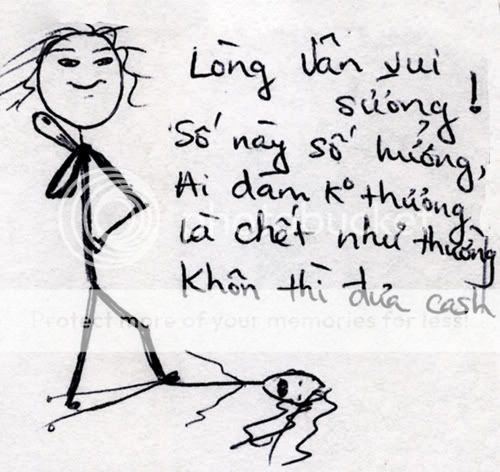 Lòng vẫn vui
sướng!
Số này số hưởng,
Ai dám k° thương
là chết như thường
photobucket
Khôn thì đưa cash
Protect more of your memories for less!